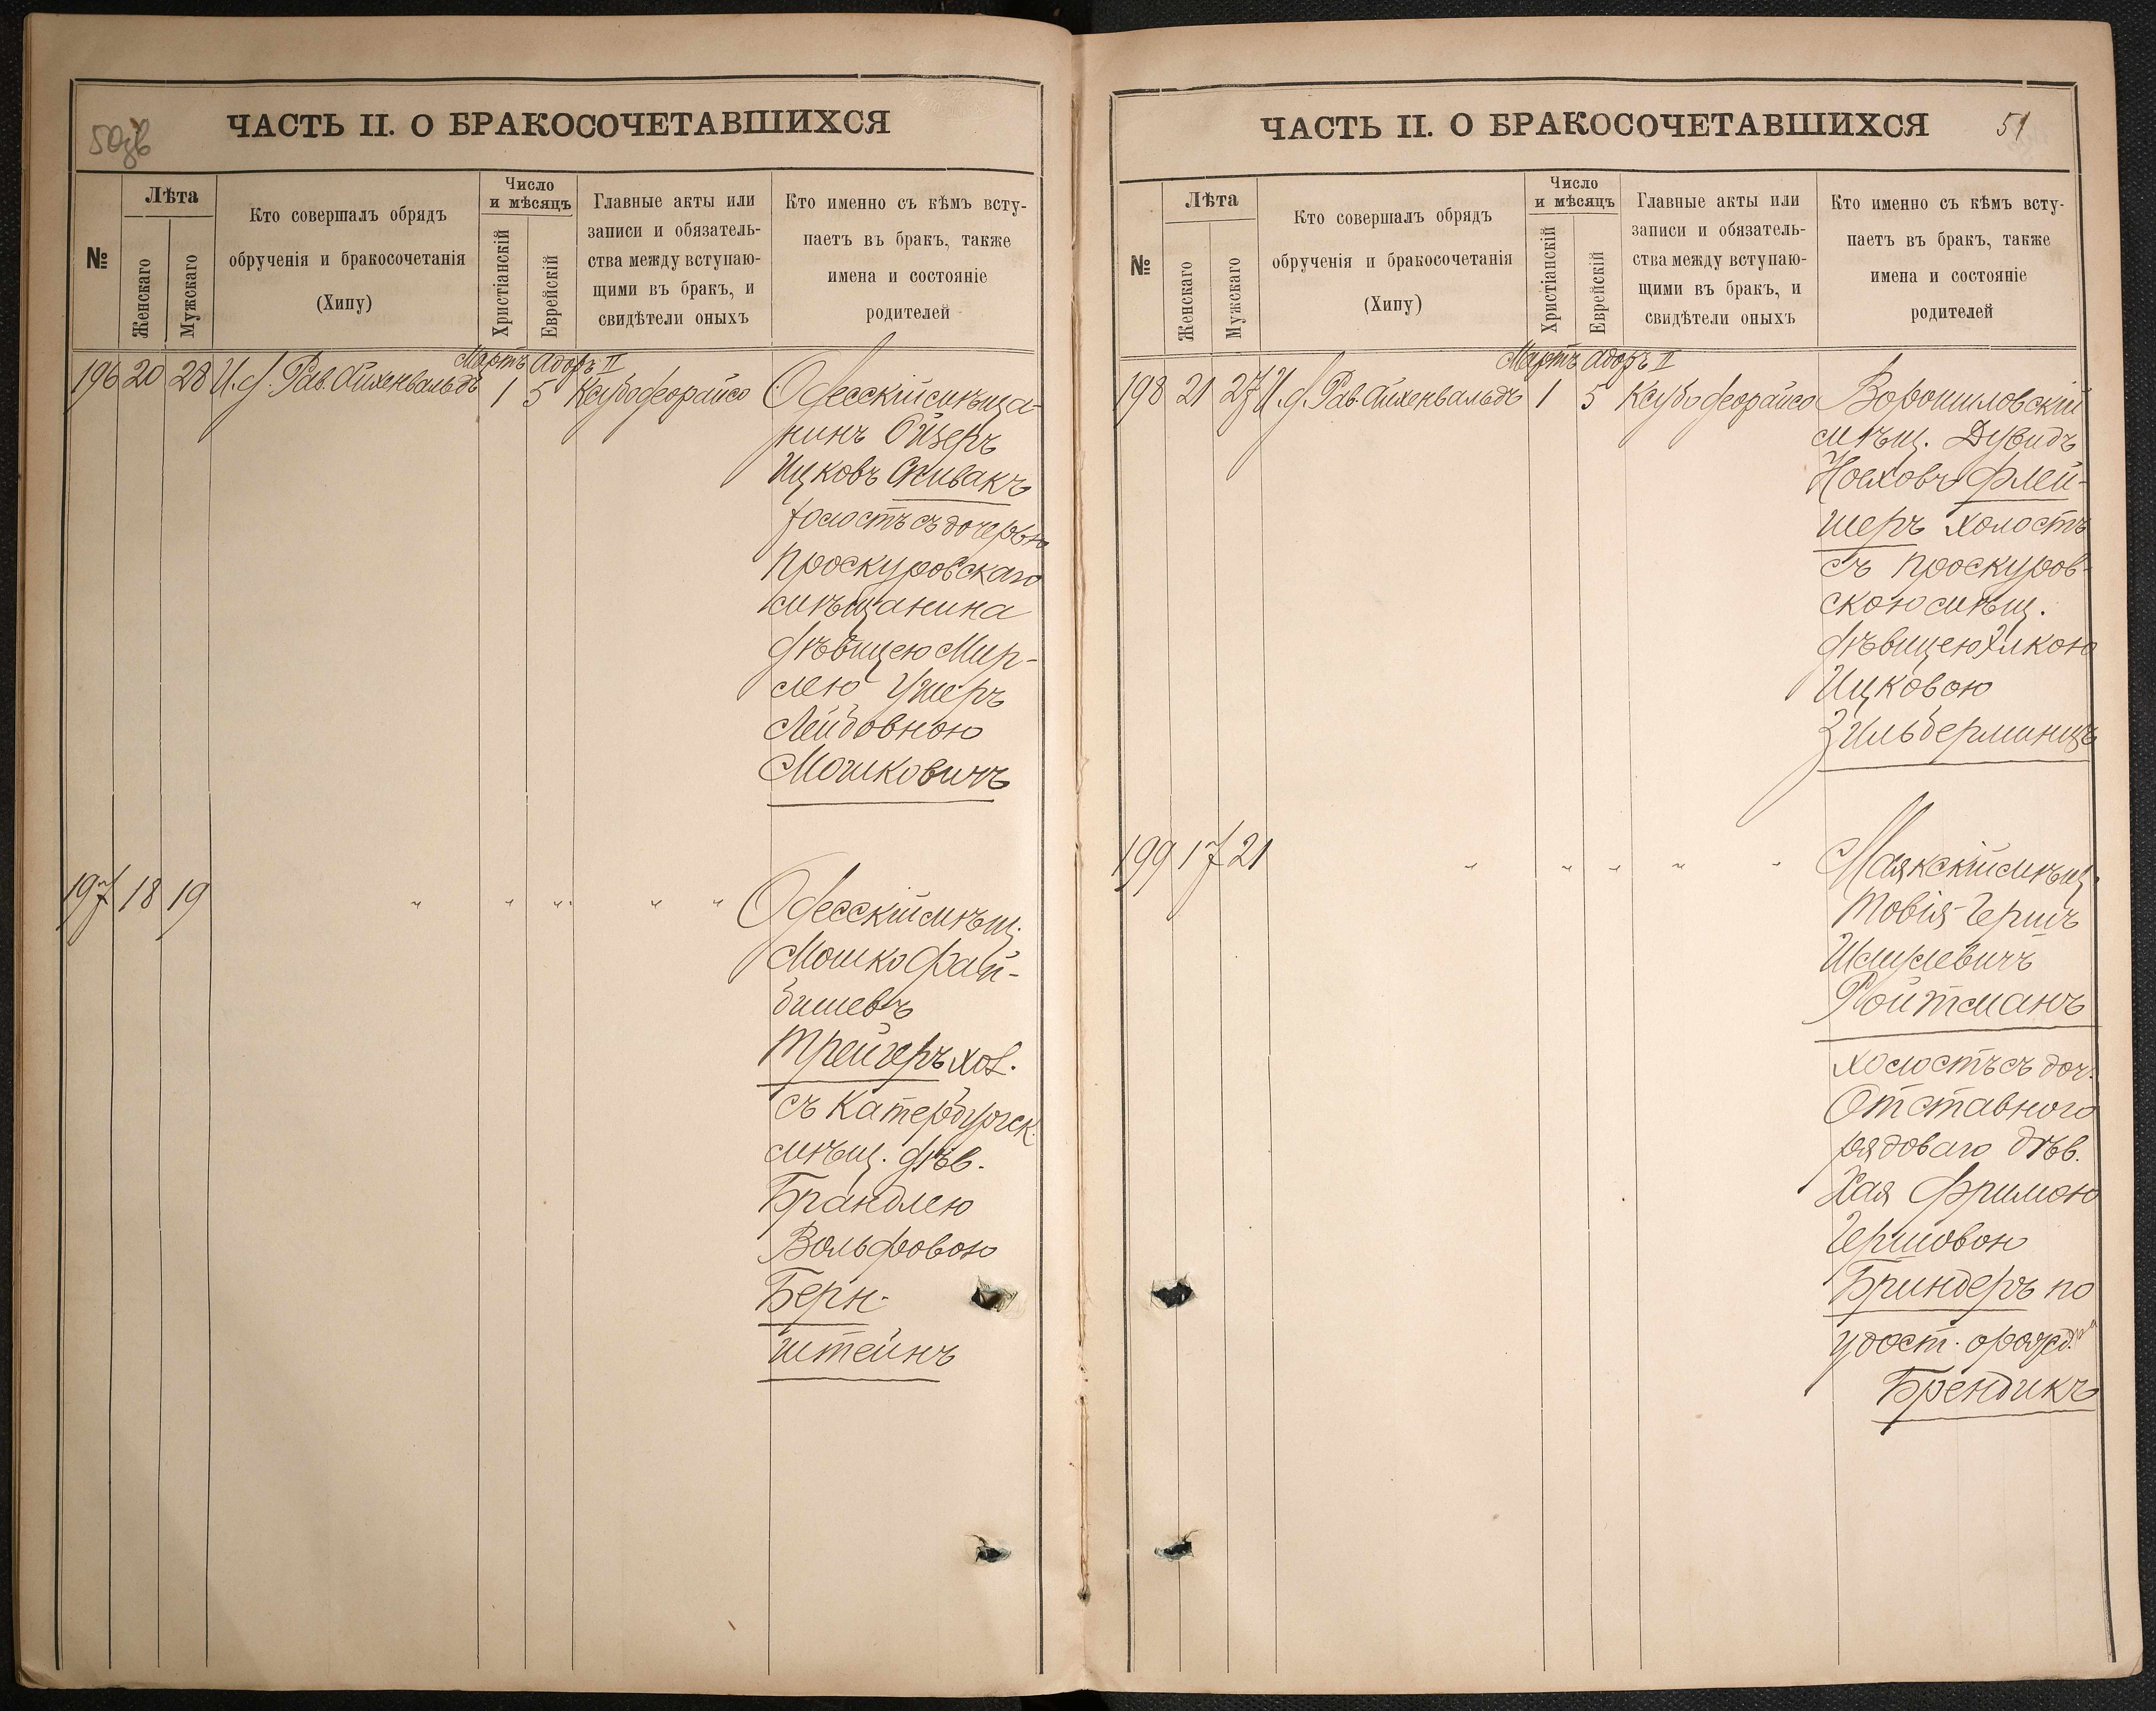 50зв
ЧАСТЬ II. О БРАКОСОЧЕТАВШИХСЯ
№
Лѣта
Женскаго
Мужскаго
Кто совершалъ обрядъ
обрученія и бракосочетанія
(Хипу)
Число
и мѣсяцъ
Христіанскій
Еврейскій
Главные акты или
записи и обязатель-
ства между вступаю-
щими въ бракъ, и
свидѣтели оныхъ
Кто именно съ кѣмъ всту-
паетъ въ бракъ, также
имена и состояніе
родителей
Мартъ Адоръ II
196 20 28 И. д. Рав. Айхенвальдъ 1 5 Ксубо деорайсо Одесскій мѣща-
нинъ Ойзеръ
Ицковъ Спивакъ
холостъ съ дочерью
Проскуровскаго
мѣщанина
дѣвицею Мир-
лею Ушеръ
Лейбовною
Мошковичъ
197 18 19 " " " " " Одесскій мѣщ.
Мошко Фай-
бишевъ
Трейгеръ хол.
съ Катербургск.
мѣщ. дѣв.
Брандлею
Вольфовою
Берн-
штейнъ
ЧАСТЬ II. О БРАКОСОЧЕТАВШИХСЯ
51
№
Лѣта
Женскаго
Мужскаго
Кто совершалъ обрядъ
обрученія и бракосочетанія
(Хипу)
Число
и мѣсяцъ
Христіанскій
Еврейскій
Главные акты или
записи и обязатель-
ства между вступаю-
щими въ бракъ, и
свидѣтели оныхъ
Кто именно съ кѣмъ всту-
паетъ въ бракъ, также
имена и состояніе
родителей
Мартъ Адоръ II
198 21 27 И. д. Рав. Айхенвальдъ 1 5 Ксубо деорайсо Ворошиловскій
мѣщ. Дувидъ
Ноаховъ Флей-
шеръ холостъ
съ Проскуров-
скою мѣщ.
дѣвицею Элкою
Ицковою
Зильберминцъ
199 17 21 " " " " " Маякскій мѣщ.
Товія-Гершъ
Шмулевичъ
Ройтманъ
холостъ съ доч.
Отставного
рядоваго дѣв.
Хая Фримою
Гершовою
Бриндеръ по
удост. о рожд.
Брендикъ